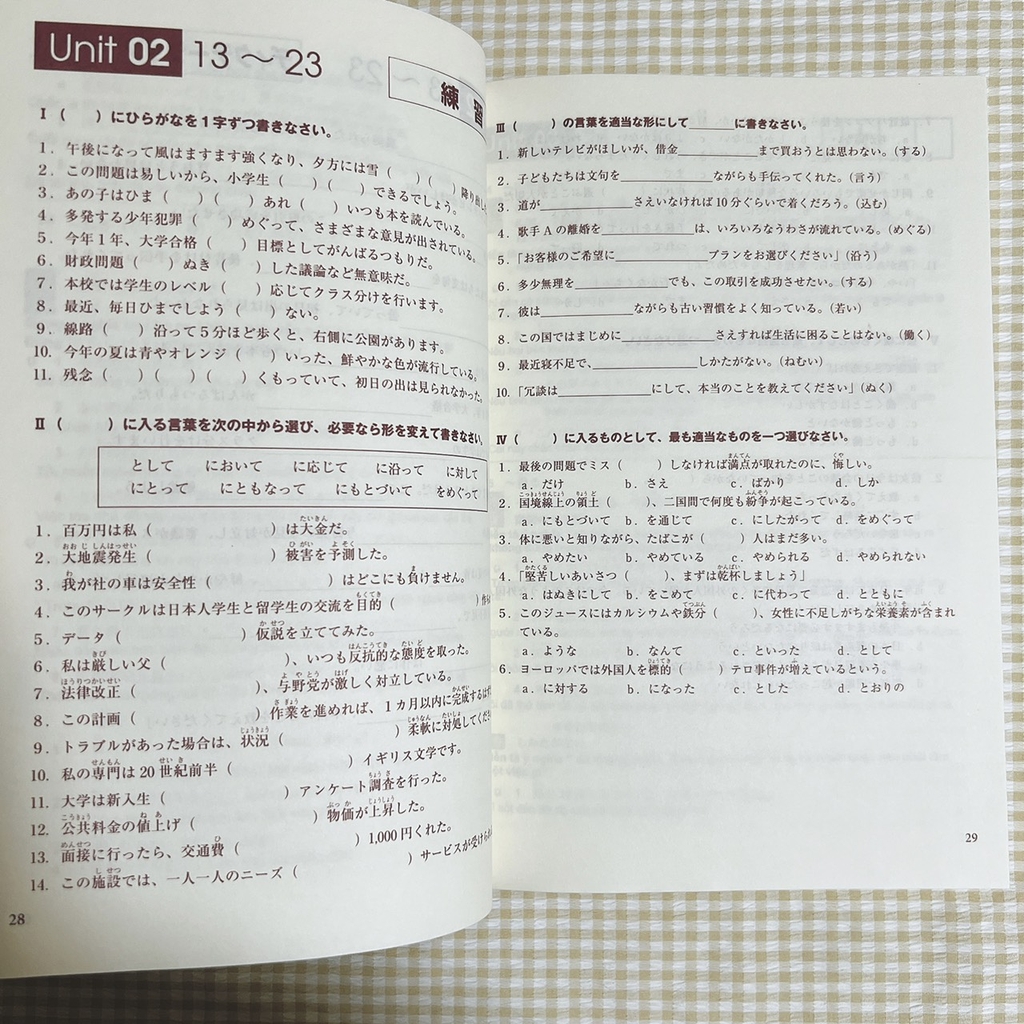 Unit 02 13 ～ 23
練習
Ⅰ （　　）にひらがなを1字ずつ書きなさい。
1．午後になって風はますます強くなり、夕方には雪（　　）（　　）降り出し
2．この問題は易しいから、小学生（　　）（　　）できるでしょう。
3．あの子はひま（　　）（　　）あれ（　　）いつも本を読んでいる。
4．多発する少年犯罪（　　）めぐって、さまざまな意見が出されている。
5．今年1年、大学合格（　　）目標としてがんばるつもりだ。
6．財政問題（　　）ぬき（　　）した議論など無意味だ。
7．本校では学生のレベル（　　）応じてクラス分けを行います。
8．最近、毎日ひまでしよう（　　）ない。
9．線路（　　）沿って5分ほど歩くと、右側に公園があります。
10．今年の夏は青やオレンジ（　　）いった、鮮やかな色が流行している。
11．残念（　　）（　　）（　　）くもっていて、初日の出は見られなかった。
Ⅱ （　　）に入る言葉を次の中から選び、必要なら形を変えて書きなさい。
として　において　に応じて　に沿って　に対して
にとって　にともなって　にもとづいて　をめぐって
1．百万円は私（　　）は大金だ。
2．大地震発生（　　）被害を予測した。
3．我が社の車は安全性（　　）はどこにも負けません。
4．このサークルは日本人学生と留学生の交流を目的（　　）
5．データ（　　）仮説を立ててみた。
6．私は厳しい父（　　）、いつも反抗的な態度を取った。
7．法律改正（　　）、与野党が激しく対立している。
8．この計画（　　）作業を進めれば、1カ月以内に完成するはず
9．トラブルがあった場合は、状況（　　）柔軟に対処してくだ
10．私の専門は20世紀前半（　　）イギリス文学です。
11．大学は新入生（　　）アンケート調査を行った。
12．公共料金の値上げ（　　）物価が上昇した。
13．面接に行ったら、交通費（　　）1,000円くれた。
14．この施設では、一人一人のニーズ（　　）サービスが受けられ
28
Ⅲ （　　）の言葉を適当な形にして＿＿＿に書きなさい。
1．新しいテレビがほしいが、借金＿＿＿まで買おうとは思わない。（する）
2．子どもたちは文句を＿＿＿ながらも手伝ってくれた。（言う）
3．道が＿＿＿さえいなければ10分ぐらいで着くだろう。（込む）
4．歌手Aの離婚を＿＿＿は、いろいろなうわさが流れている。（めぐる）
5．「お客様のご希望に＿＿＿プランをお選びください」（沿う）
6．多少無理を＿＿＿でも、この取引を成功させたい。（する）
7．彼は＿＿＿ながらも古い習慣をよく知っている。（若い）
8．この国ではまじめに＿＿＿さえすれば生活に困ることはない。（働く）
9．最近寝不足で、＿＿＿しかたがない。（ねむい）
10．「冗談は＿＿＿にして、本当のことを教えてください」（ぬく）
Ⅳ （　　）に入るものとして、最も適当なものを一つ選びなさい。
1．最後の問題でミス（　　）しなければ満点が取れたのに、悔しい。
a．だけ　b．さえ　c．ばかり　d．しか
2．国境線上の領土（　　）、二国間で何度も紛争が起こっている。
a．にもとづいて　b．を通じて　c．にしたがって　d．をめぐって
3．体に悪いと知りながら、たばこが（　　）人はまだ多い。
a．やめたい　b．やめている　c．やめられる　d．やめられない
4．「堅苦しいあいさつ（　　）、まずは乾杯しましょう」
a．はぬきにして　b．をこめて　c．に代わって　d．とともに
5．このジュースにはカルシウムや鉄分（　　）、女性に不足しがちな栄養素が含まれ
ている。
a．ような　b．なんて　c．といった　d．として
6．ヨーロッパでは外国人を標的（　　）テロ事件が増えているという。
a．に対する　b．になった　c．とした　d．とおりの
29